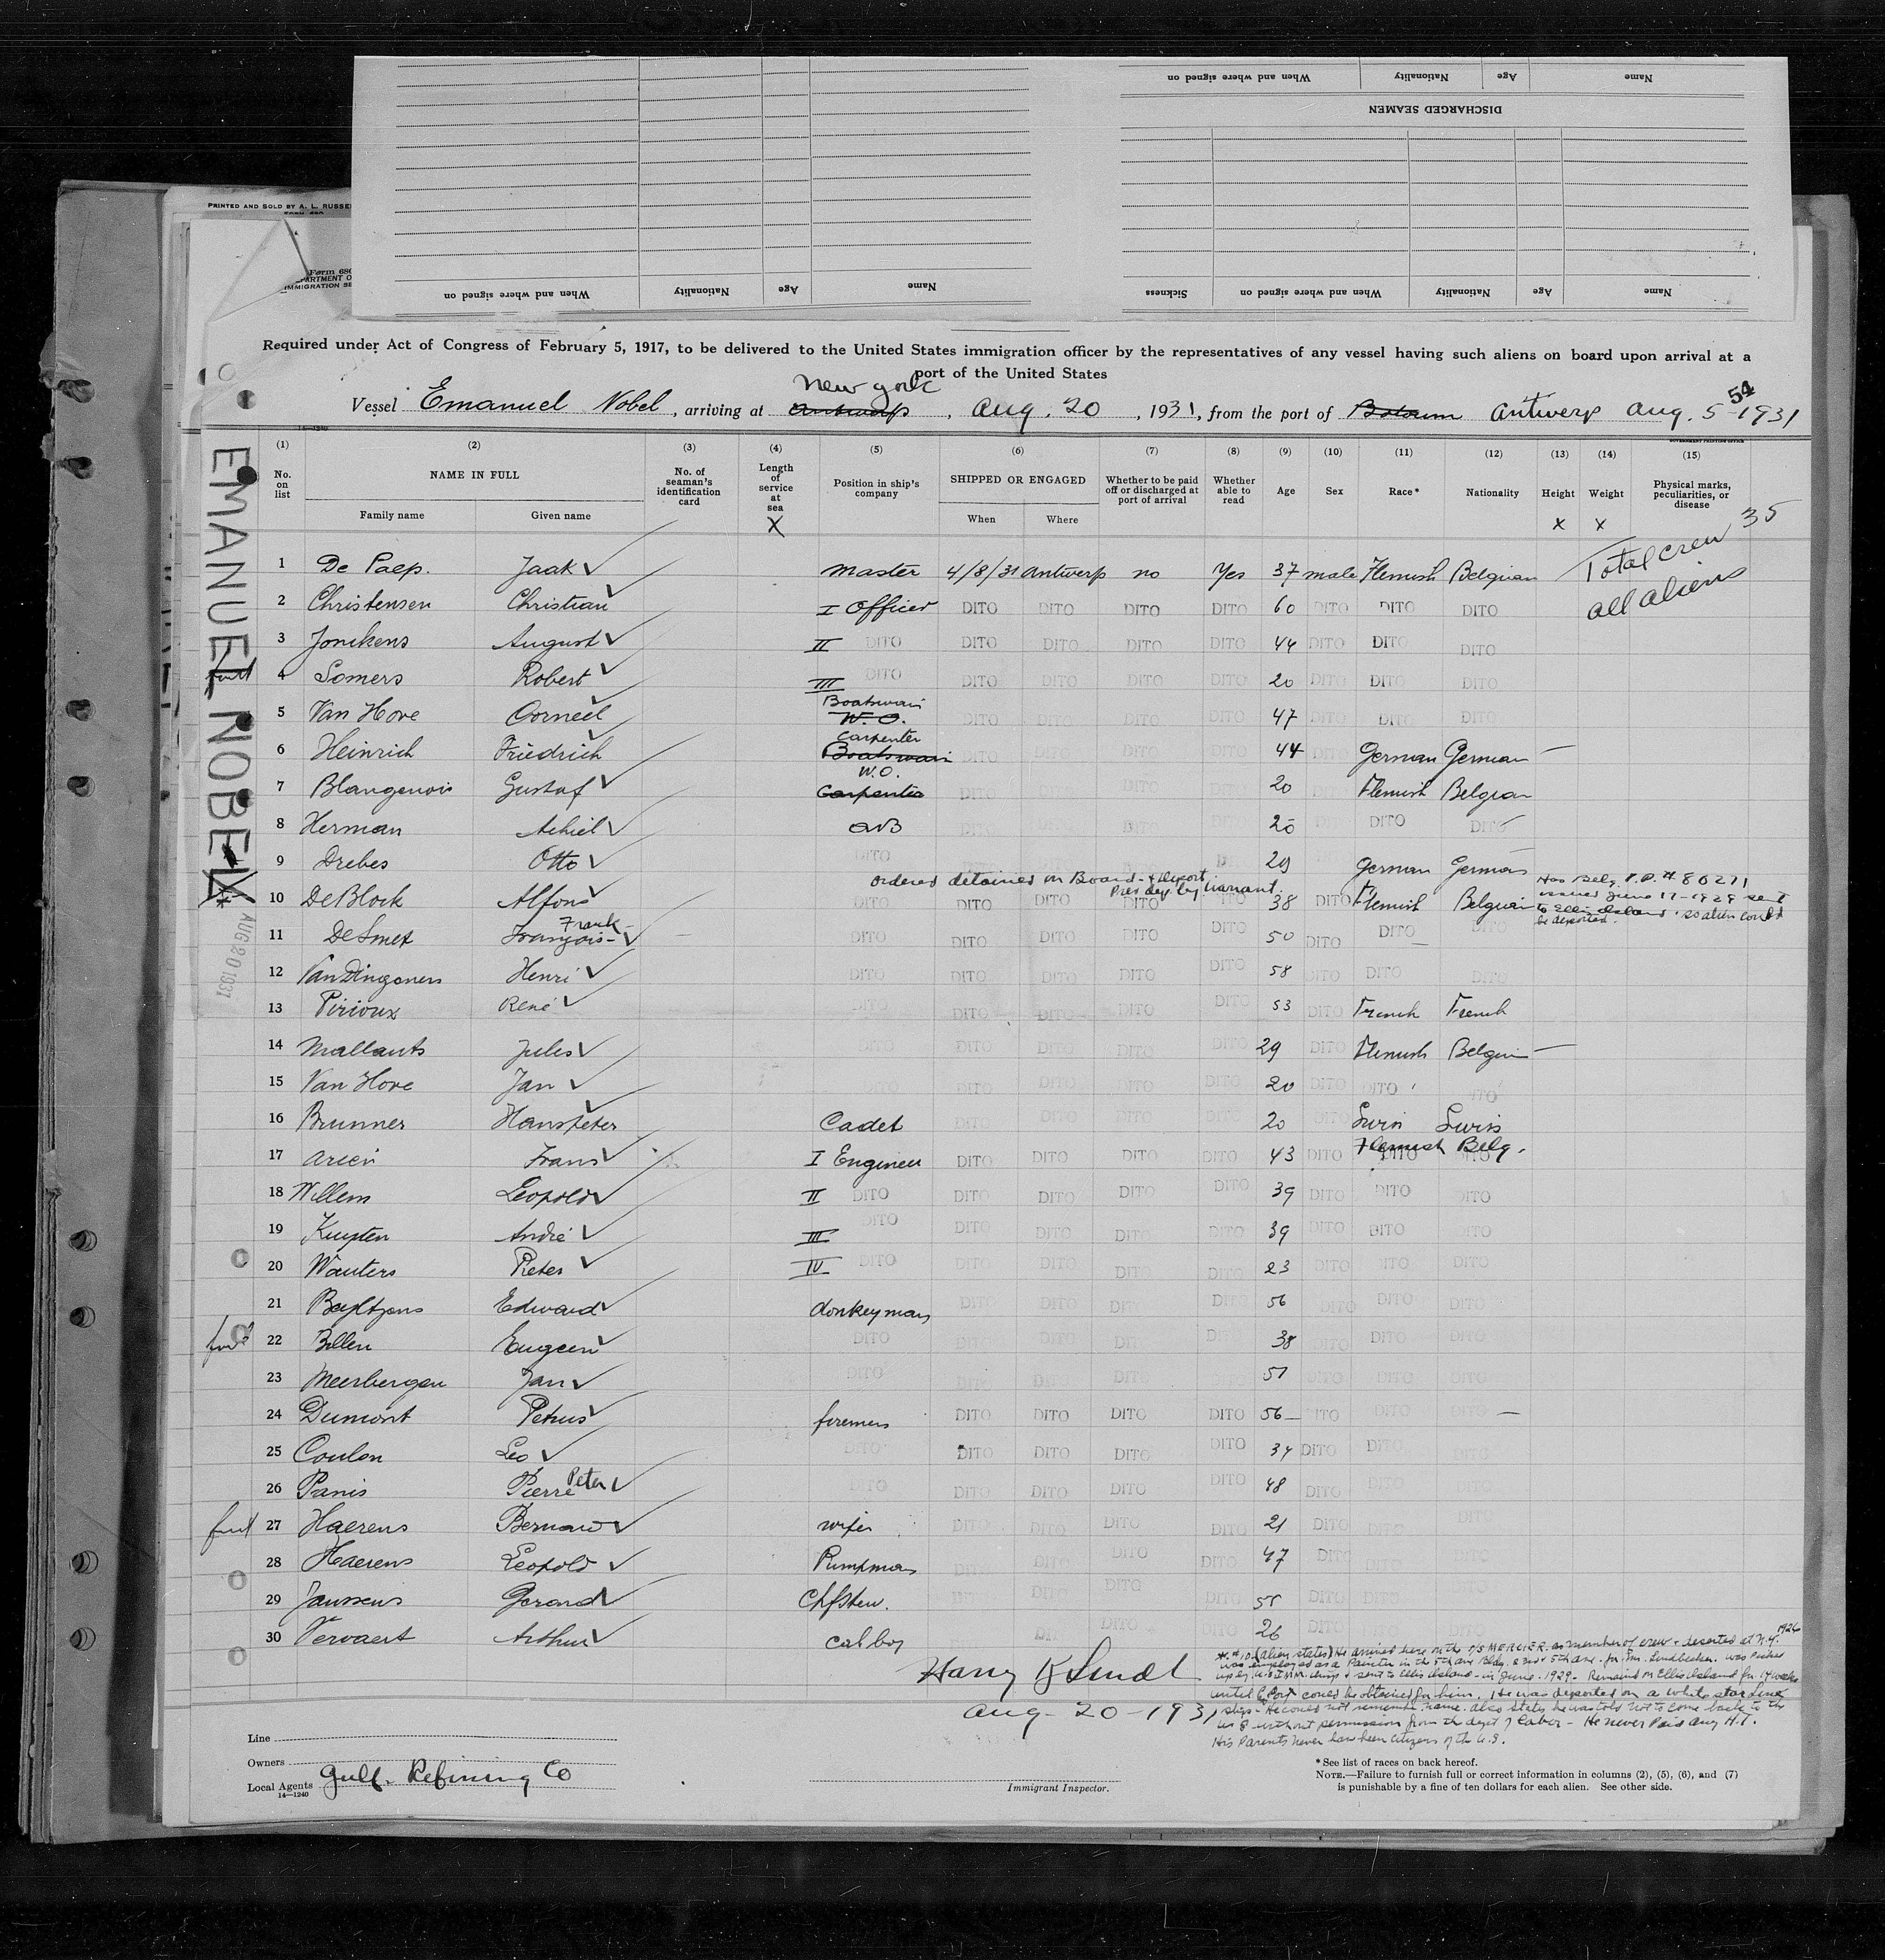 PRINTED AND SOLD BY A. L. RUSSE
When and where signed on Nationality Age Name
DISCHARGED SEAMEN
When and where signed on Nationality Age Name Sickness When and where signed on Nationality Age Name
Form 680
IMMIGRATION SE
Required under Act of Congress of February 5, 1917, to be delivered to the United States immigration officer by the representatives of any vessel having such aliens on board upon arrival at a
port of the United States
54
New York
Vessel Emanuel Nobel, arriving at Antwerp, Aug. 20, 1931, from the port of Antwerp Aug. 5-1931
EMANUEL NOBEL
AUG 20 1931
(1) (2) (3) (4) (5) (6) (7) (8) (9) (10) (11) (12) (13) (14) (15)
No. on list NAME IN FULL Family name Given name No. of seaman's identification card Length of service at sea Position in ship's company SHIPPED OR ENGAGED When Where Whether to be paid off or discharged at port of arrival Whether able to read Age Sex Race* Nationality Height Weight Physical marks, peculiarities, or disease
X X X
Total crew 35
all aliens
1 De Paep. Jaak Master 4/8/31 Antwerp no Yes 37 male Flemish Belgian
2 Christensen Christian I Officer DITO DITO DITO DITO 60 DITO DITO DITO
3 Jonikens August II DITO DITO DITO DITO DITO 44 DITO DITO DITO
4 Somers Robert III DITO DITO DITO DITO DITO 20 DITO DITO DITO
5 Van Hove Corneel Boatswain W.O. DITO DITO DITO DITO 47 DITO DITO DITO
6 Heinrich Friedrich Carpenter Boatswain DITO DITO DITO DITO 44 DITO German German
7 Blangenois Gustaf W.O. Carpenter DITO 20 Flemish Belgian
8 Herman Achiel AB DITO 20 DITO DITO
9 Drebes Otto DITO 29 German German
Ordered detained on Board & deport
10 DeBlock Alfons DITO DITO DITO DITO DITO 38 DITO Flemish Belgian
Has Belg. P.P. # 80271
issued June 17-1929 sent
to Ellis Island so alien could
be deported.
11 DeSmet François Frank DITO DITO DITO DITO DITO 50 DITO DITO DITO
12 VanDingenen Henri DITO DITO DITO DITO DITO 58 DITO DITO DITO
13 Pirioux René DITO DITO DITO DITO DITO 53 DITO French French
14 Mallants Jules DITO DITO DITO DITO DITO 29 DITO Flemish Belgian
15 Van Hove Jan DITO DITO DITO DITO DITO 20 DITO DITO DITO
16 Brunner Hanspeter Cadet DITO DITO DITO DITO 20 DITO Swiss Swiss
17 Arien Frans I Engineer DITO DITO DITO DITO 43 DITO Flemish Belg.
18 Willems Leopold II DITO DITO DITO DITO DITO 39 DITO DITO DITO
19 Kuyten André III DITO DITO DITO DITO DITO 39 DITO DITO DITO
20 Wauters Pieter IV DITO DITO DITO DITO DITO 23 DITO DITO DITO
21 Edward donkeyman DITO DITO DITO DITO 56 DITO DITO DITO
22 Billen Eugeen DITO DITO DITO DITO DITO 38 DITO DITO DITO
23 Meerbergen Jan DITO DITO DITO DITO 51 DITO DITO DITO
24 Dumont Petrus firemen DITO DITO DITO DITO 56 DITO DITO DITO
25 Coulon Leo DITO DITO DITO DITO DITO 34 DITO DITO DITO
26 Panis Pierre Peter DITO DITO DITO DITO DITO 48 DITO DITO DITO
27 Haerens Bernard wiper DITO DITO DITO DITO 21 DITO DITO DITO
28 Haerens Leopold Pumpman DITO DITO DITO DITO 47 DITO DITO DITO
29 Janssens Gerard Chfstew. DITO DITO DITO DITO 55 DITO DITO DITO
30 Vervaert Arthur cabboy DITO DITO DITO 26 DITO
#10 (alien states) He arrived here on the S/S MERCIER as member of crew & deserted at N.Y. 1926
was employed as a Painter in the 5th ave Bldg. & 5th ave. for Wm. Lindbecker. was picked
up by & sent to Ellis Island - in June - 1929. Remained on Ellis Island for 14 weeks
until P.Port could be obtained for him. He was deported on a white star Line
ship - He could not remember name. Also states he was told not to come back to the
U S without permission from the dept of Labor - He never Paid any H.T.
His Parents never have been citizens of the U.S.
Aug-20-1931
Line
Owners
Local Agents Gulf Refining Co
14—1240
Immigrant Inspector.
*See list of races on back hereof.
NOTE.—Failure to furnish full or correct information in columns (2), (5), (6), and (7)
is punishable by a fine of ten dollars for each alien. See other side.